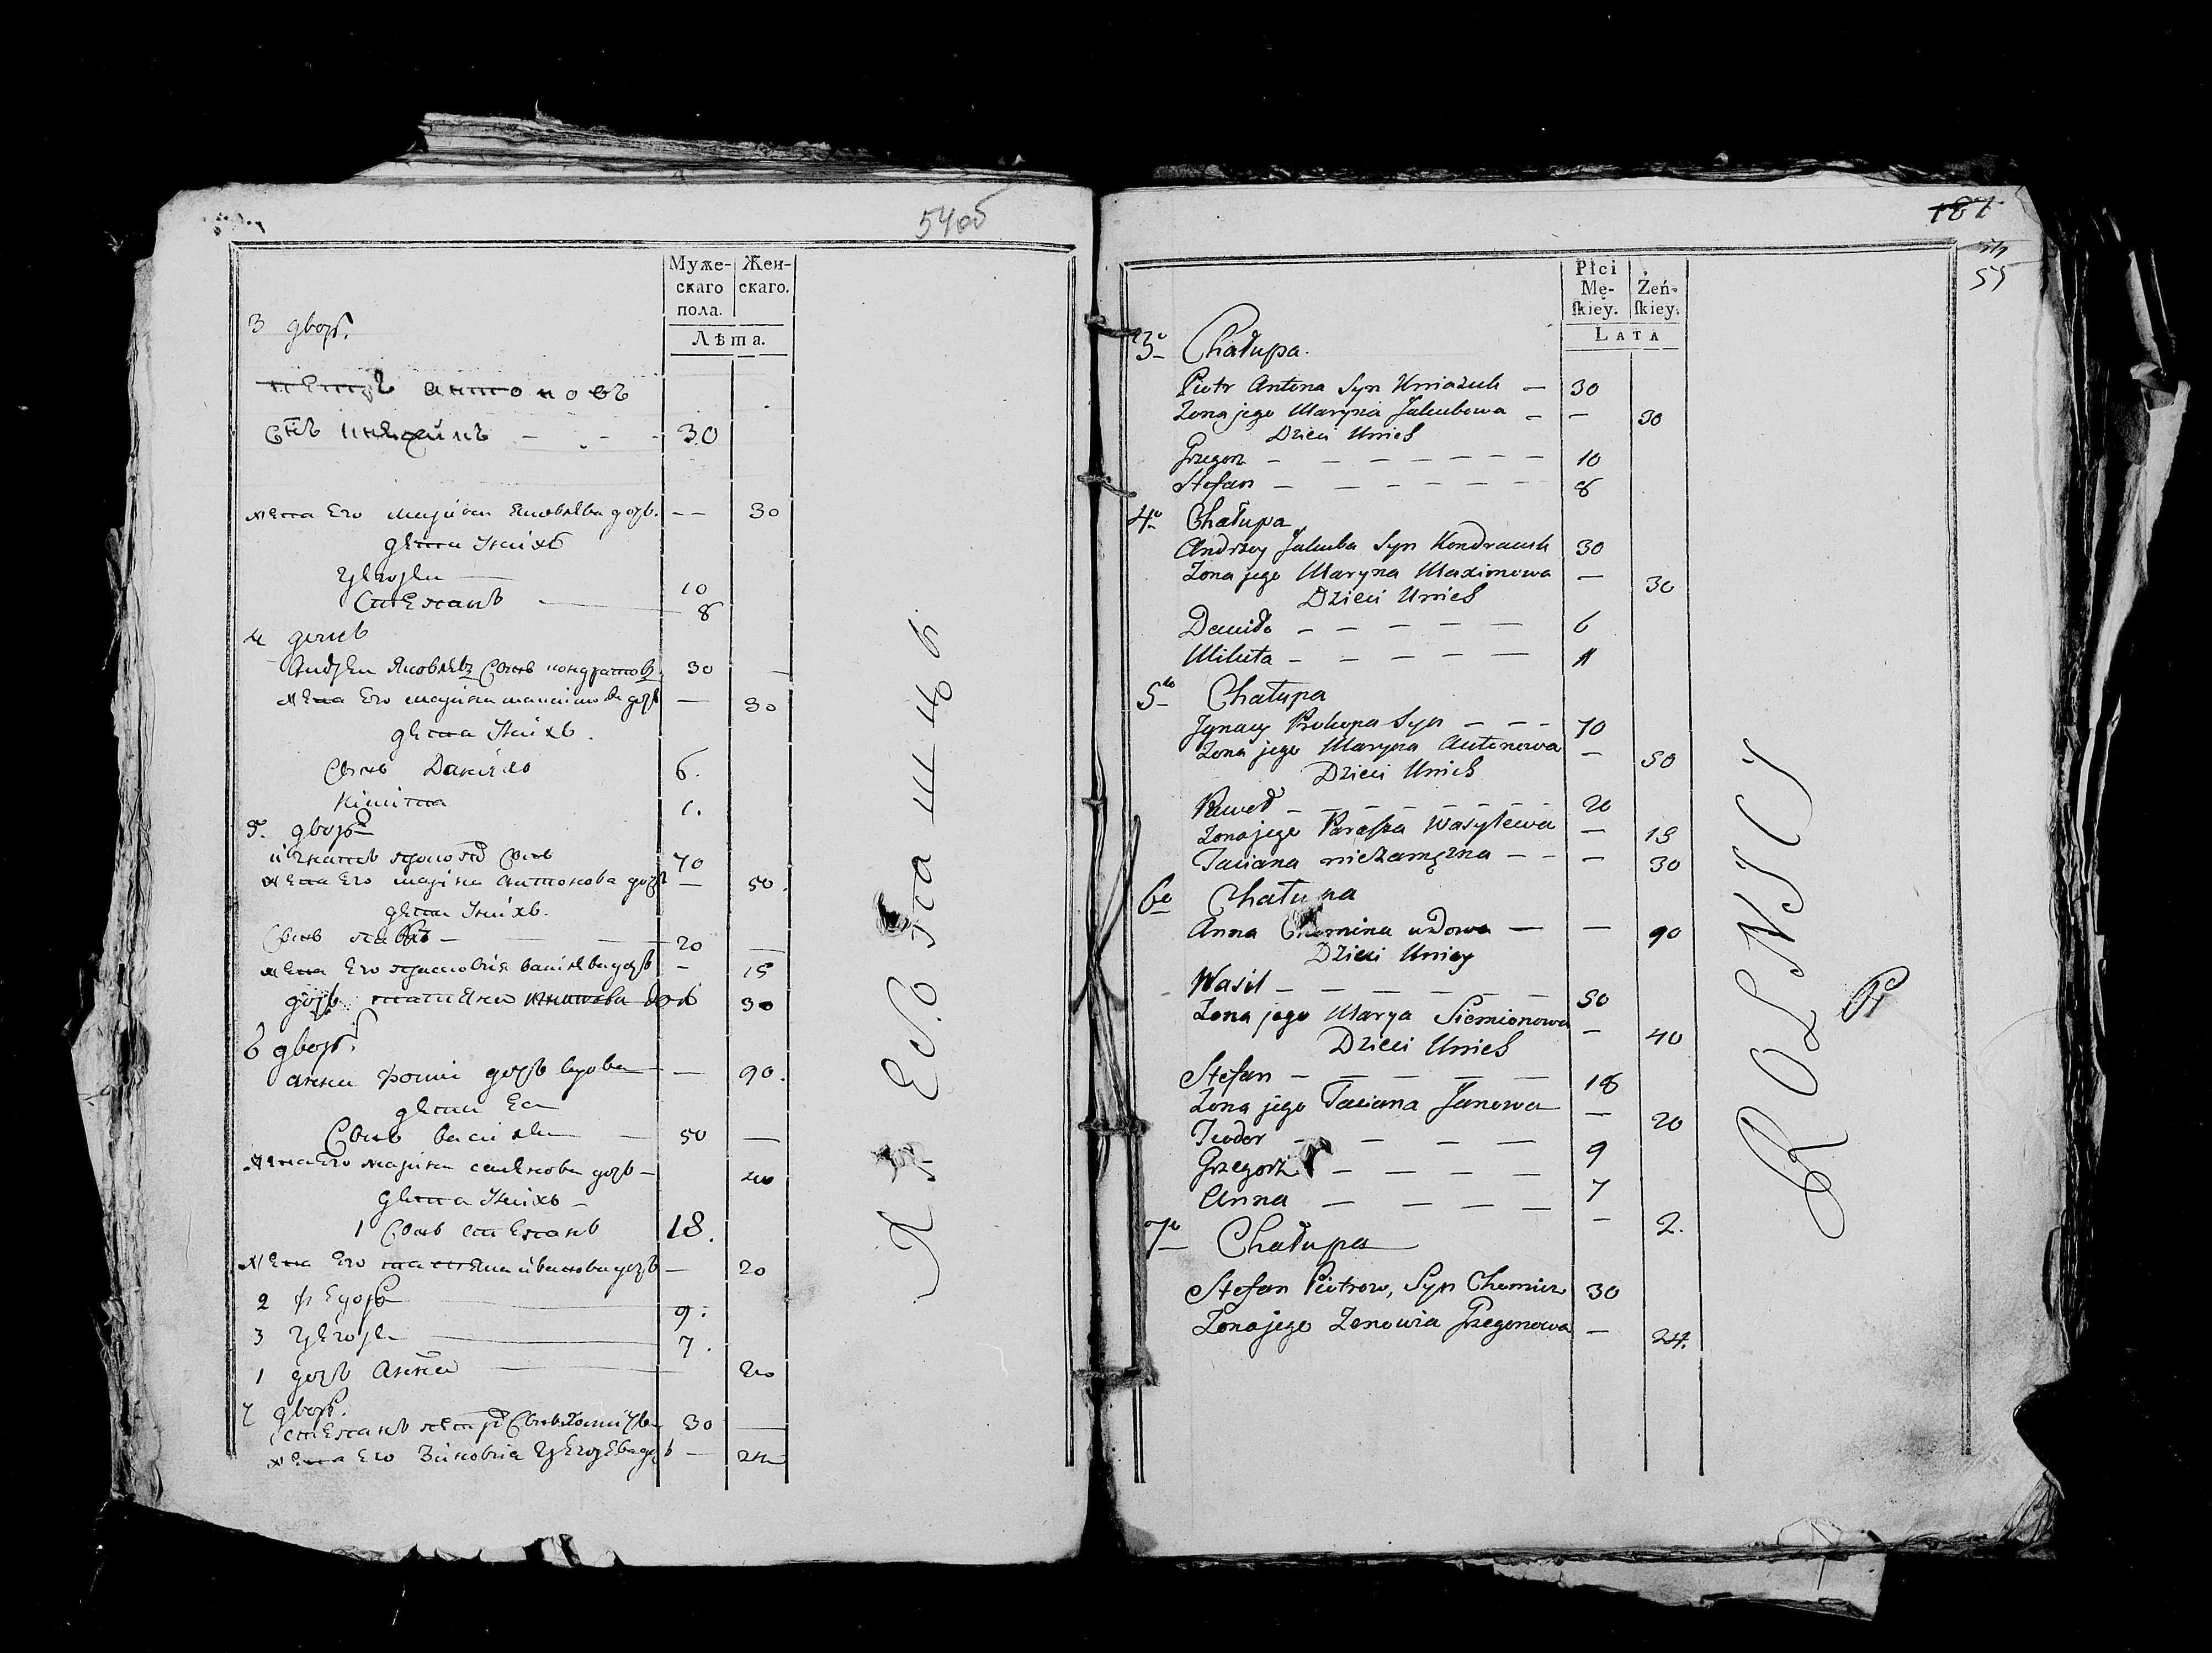 54об
Муже- Жен-
скаго скаго.
пола.
Лѣта.
3 дворъ.
петръ антоновъ
снъ 30
жена Его марина Яковлева дочь. — 30
дети У них
григорей 10
Степанъ — 8
4
Андреи Яковлевъ Сынъ кондратовъ 30 —
жена Его марина максимова дочь — 30
дети У нихъ.
Сынъ Данило 6.
Никита 1.
5. дворъ
игнатъ прокопов Сынъ 70
жена Его марина антонова дочь — 50.
дети У нихъ.
Сынъ павел — 20 —
жена Его прасковия васильева дочь — 15
дочь татияна 30
6 дворъ.
анна фоми дочь вдова — — 90.
дети Ея
Сынъ василей — 50 —
жена Его марина семенова дочь — 40
дети У нихъ —
1 Сынъ степанъ 18.
жена Его татияна иванова дочь — 20
2 федоръ 9.
3 григорей 7.
1 дочь анна 2
7 дворъ.
степанъ петров Сынъ 30 —
жена Его Зиновия григорева дочь — 24
187
55
Płci
Mę- Żeń-
ſkiey. ſkiey.
LATA
3o Chałupa.
Piotr Antona Syn Kniazuk — 30
Zona jego Maryna Jakubowa — — 30
Dzieci Unich
Grzegorz — — — — — — — 10
Stefan — — — — — — 8
4o Chałupa
Andrzey Jakuba Syn Kondraciuk 30
Zona jego Maryna Maximowa — 30
Dzieci Unich
Daniło — — — — — 6
Mikita — — — — — 1
5to Chałupa
Jgnacy Prokopa Syn — — — 70
Zona jego Maryna Antonowa — 50
Dzieci Unich
Paweł — — — — — — — 20
Zona jego Paraska Wasylewa — 15
Taciana niezamężna — — — 30
6o Chałupa
Anna Chomina wdowa — — 90
Dzieci Uniey
Wasil — — — — — — 50
Zona jego Marya Siemionowa — 40
Dzieci Unich
Stefan — — — — — 18
Zona jego Taciana Janowa — 20
Teodor — — — — 9
Grzegorz — — — — 7
Anna — — — — — 2.
7o Chałupa
Stefan Piotrow, Syn Chomicz 30
Zona jego Zenowia Grzegorzowa — 24.
ROLNICY